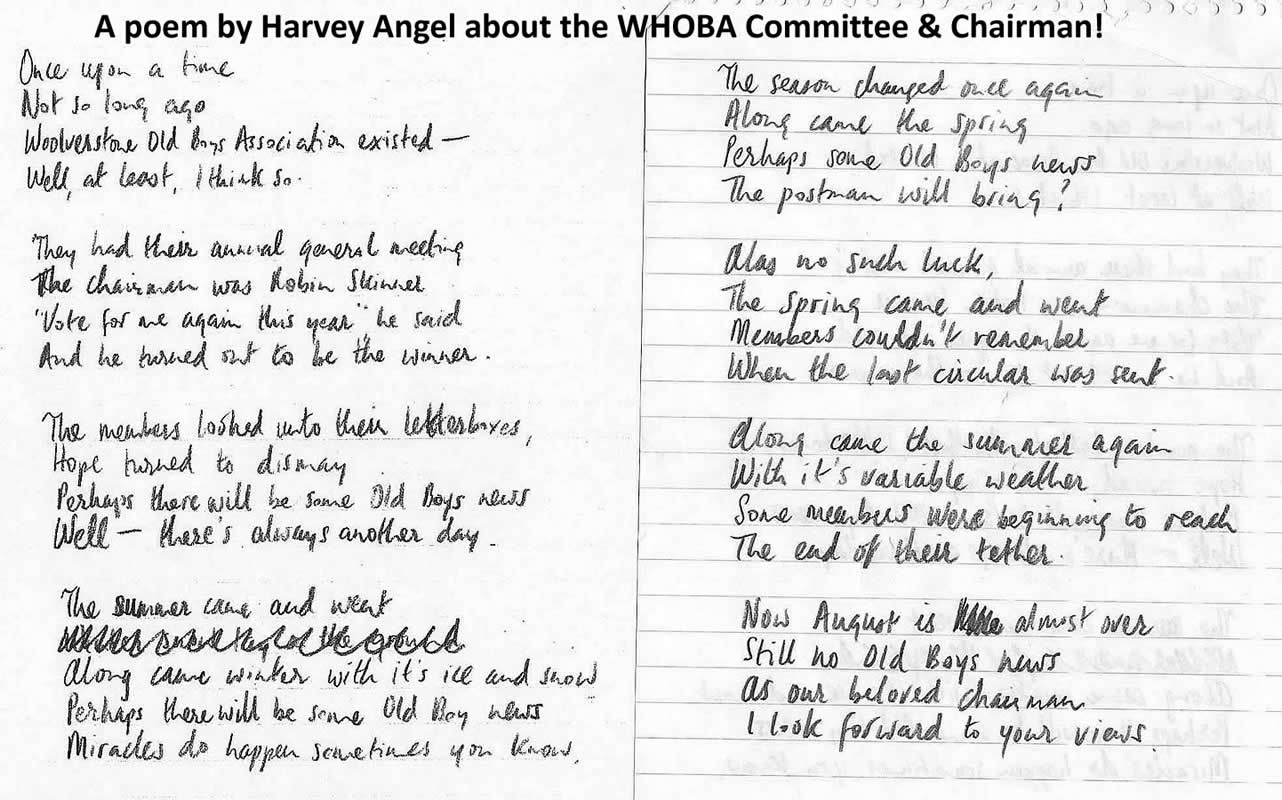 A poem by Harvey Angel about the WHOBA Committee & Chairman!
Once upon a time
Not so long ago
Woolverstone Old Boys Association existed –
Well, at least, I think so.
They had their annual general meeting
The chairman was Robin Skinner
"Vote for me again this year" he said
And he turned out to be the winner.
The members looked into their letterboxes,
Hope turned to dismay
Perhaps there will be some Old Boys news
Well – there's always another day.
The summer came and went
Along came winter with it's ice and snow
Perhaps there will be some Old Boy news
Miracles do happen sometimes you know.
The season changed once again
Along came the spring
Perhaps some Old Boys news
The postman will bring?
Alas no such luck,
The spring came and went
Members couldn't remember
When the last circular was sent.
Along came the summer again
With it's variable weather
Some members were beginning to reach
The end of their tether.
Now August is almost over
Still no Old Boys news
As our beloved chairman
I look forward to your views.